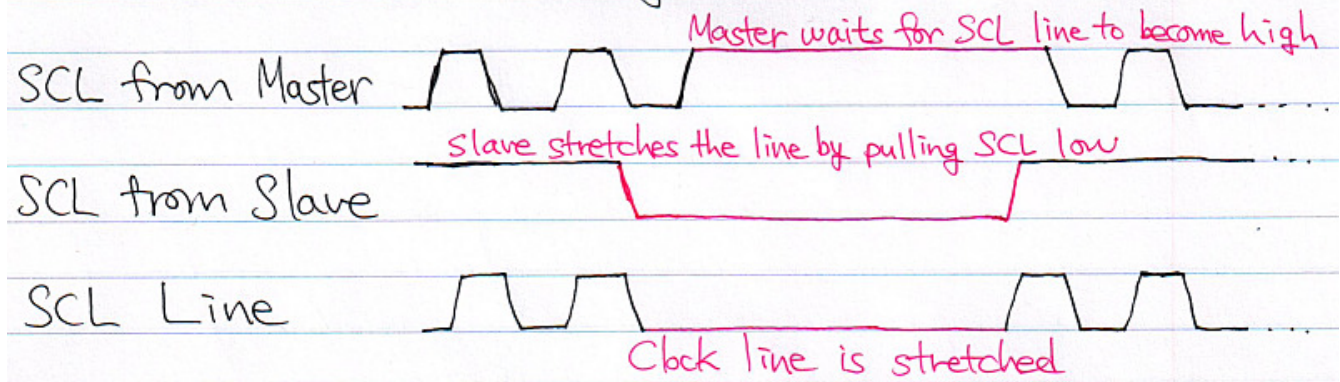 Master waits for SCL line to become high
SCL from Master
Slave stretches the line by pulling SCL low
SCL from Slave
SCL Line
Clock line is stretched